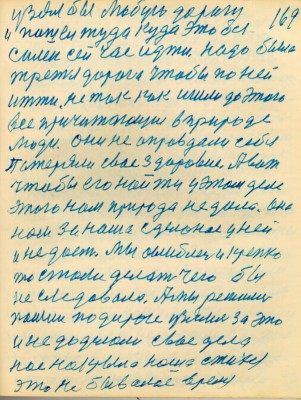 169
узял бы любую дорогу
и пошел туда куда это бы.
самим сейчас идти надо была
третя дорога чтобы по ней
итти, не так как ишли до этого
все причитающи в природе
люди. Они не оправдали себя
Потеряли свое здоровие. А вот
чтобы его найти у этом деле
этого нам природа не дала. Она
нам за наша сделоное у ней
и не дает. Мы ошиблис и крепко
то стали делат чего бы
не следовала. А ты решил
пошли по дороге узяли за это
и не доднали свое дела
наше
это не бывалае время